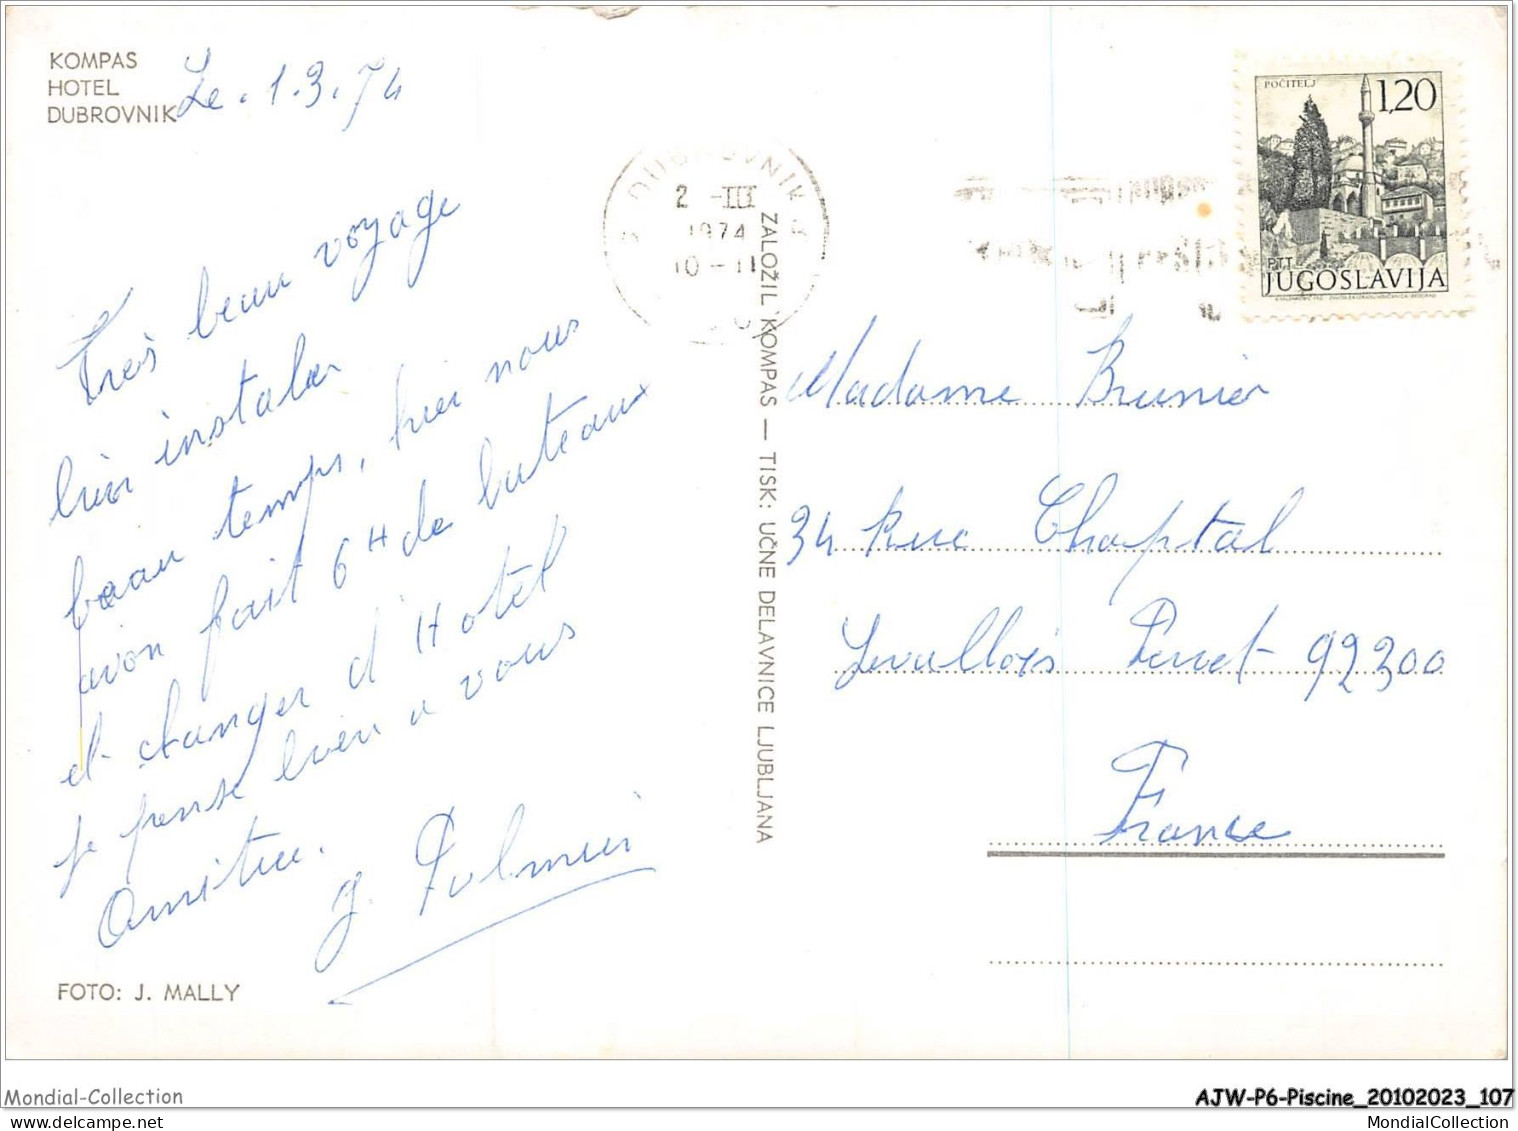 KOMPAS
HOTEL
DUBROVNIK
Le. 1.3.74
Très beau voyage
bien instaler
beau temps, hier nous
avon fait 6H de bateaux
et changer d'Hotel
je pense bien a vous
Amitiée.
J.
FOTO: J. MALLY
DUBROVNIK
2 -III
1974
10-11
ZALOŽIL KOMPAS — TISK: UČNE DELAVNICE LJUBLJANA
POČITELJ
1,20
PTT
JUGOSLAVIJA
Madame Brunier
34 Rue Chaptal
Levallois Perret 92300
France
Mondial-Collection
mondial-collection.delcampe.net
AJW-P6-Piscine_20102023_107
MondialCollection